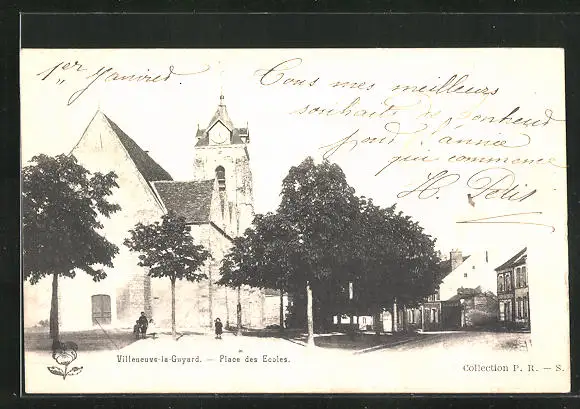 1er Janvier
Tous mes meilleurs
souhaits de bonheur
pour l'année
qui commence
H. Petit
Villeneuve-la-Guyard. — Place des Ecoles.
Collection P. R. — S.